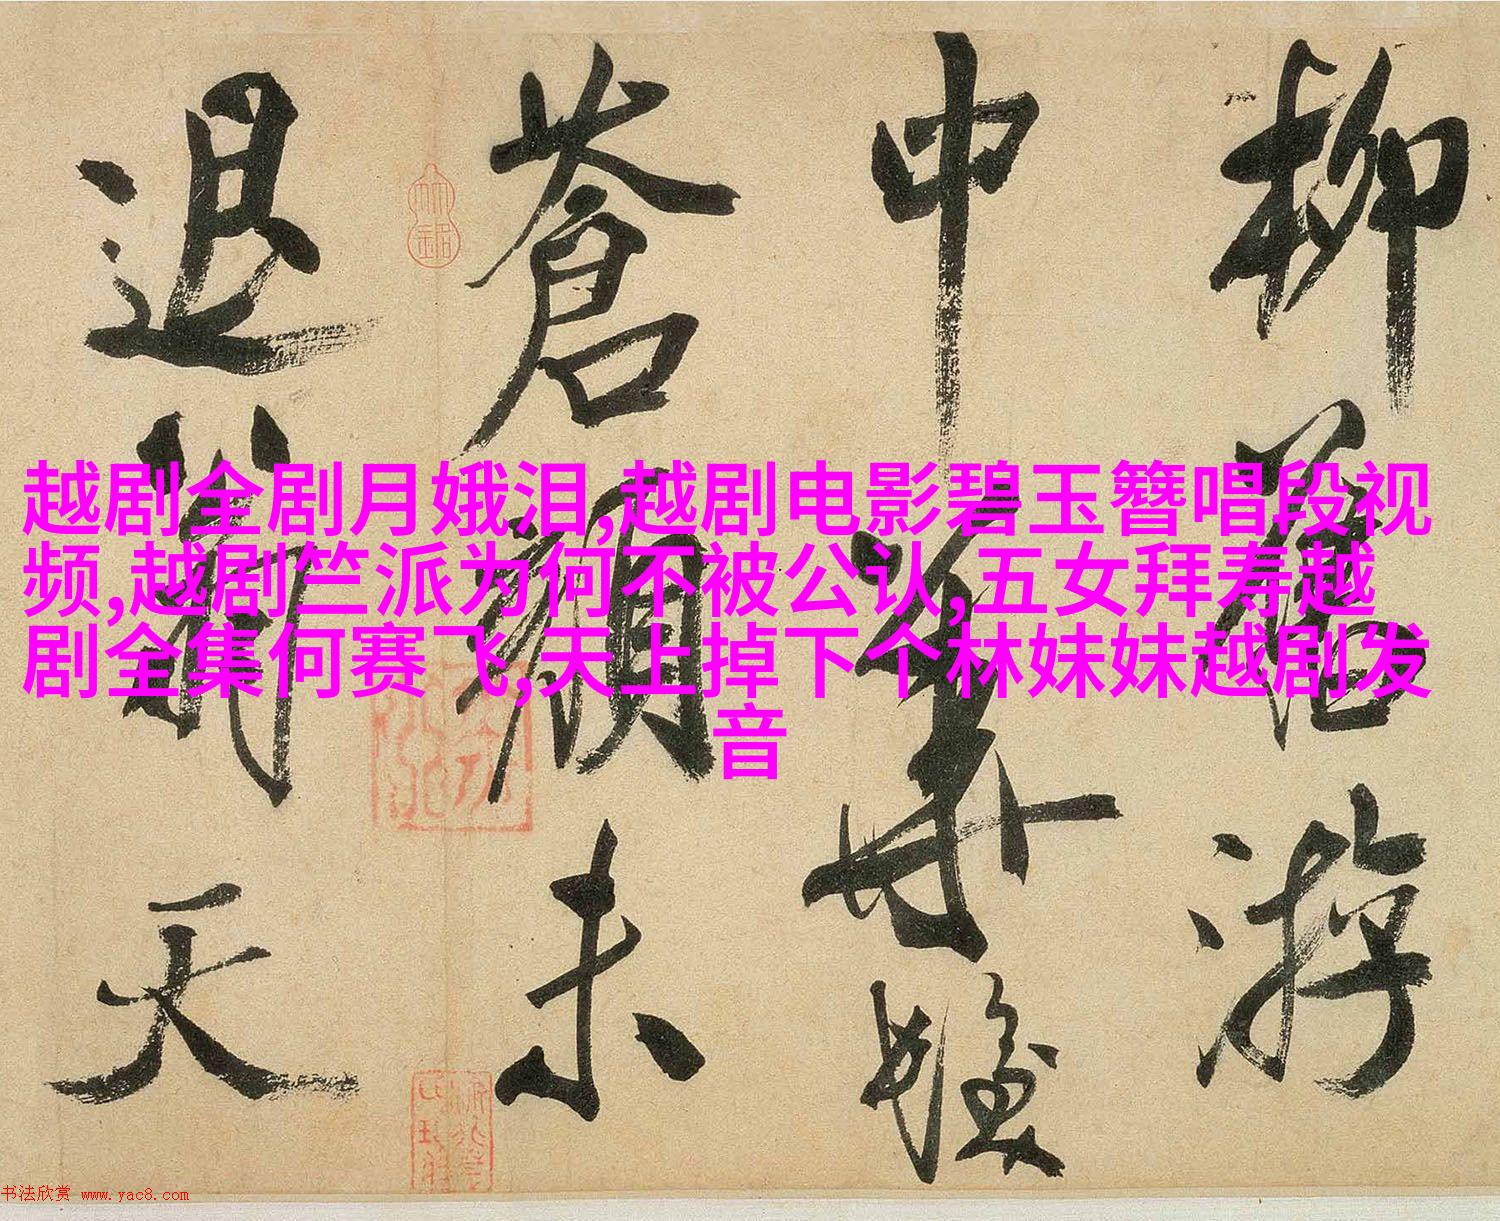 越剧全剧月娥泪,越剧电影碧玉簪唱段视
频,越剧竺派为何不被公认,五女拜寿越
剧全集何赛飞,天上掉下个林妹妹越剧发
音
柳
中
蒼顏未
退
天
游
書法欣赏 www.yac8.com